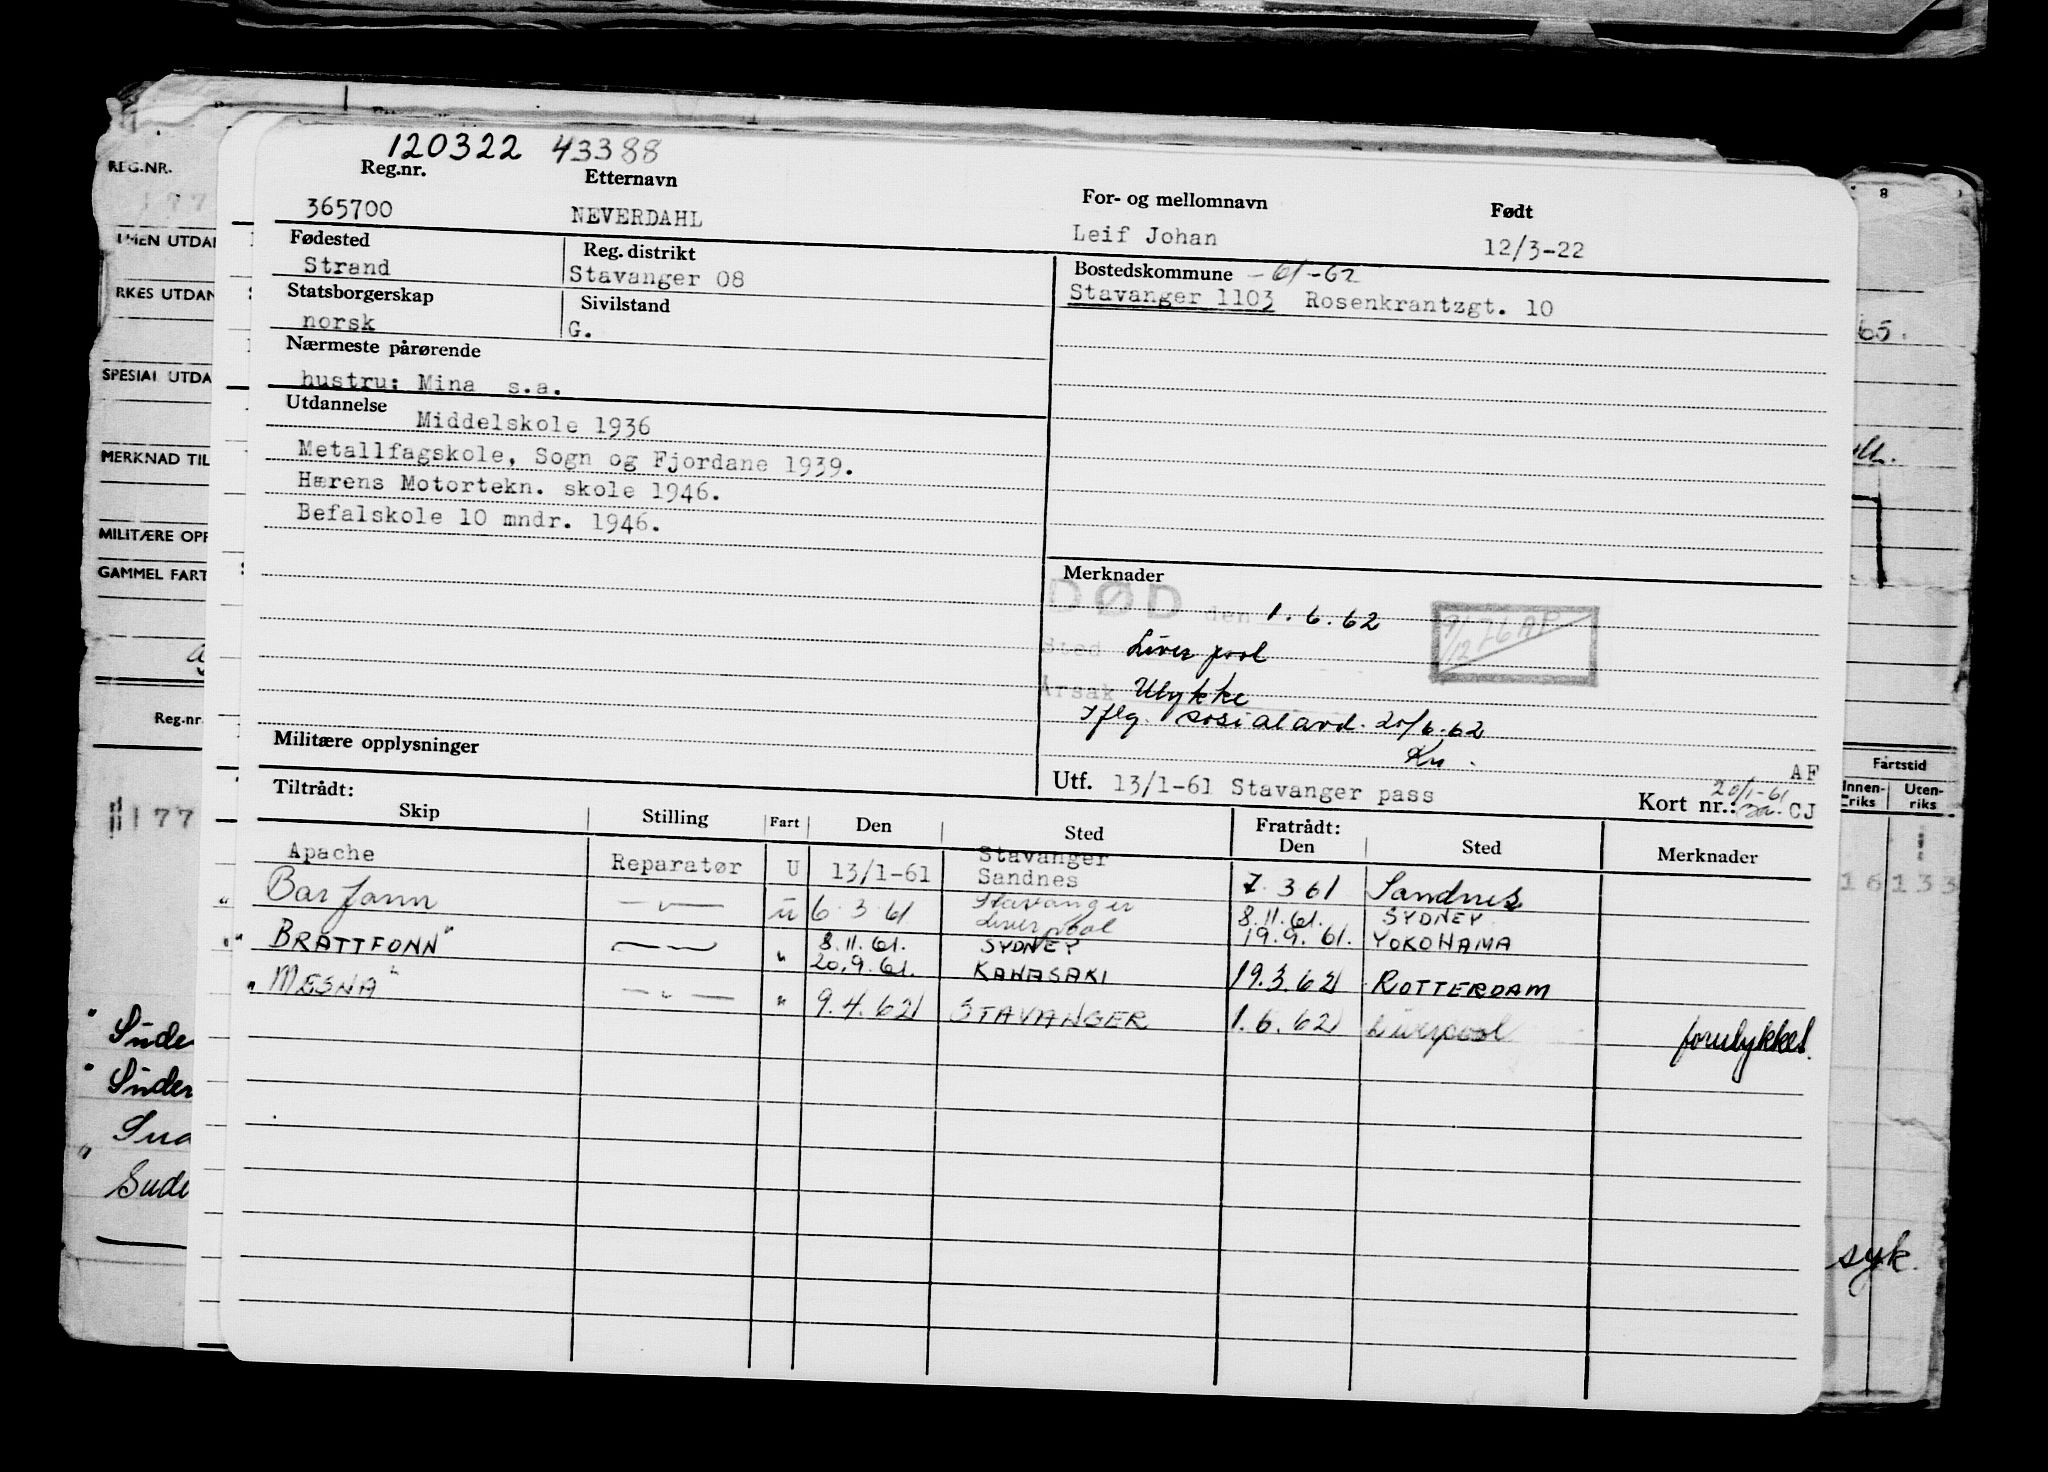 120322 43388
Reg.nr. Etternavn For- og mellomnavn Født
365700 NEVERDAHL Leif Johan 12/3-22
Fødested Reg. distrikt Bostedskommune -61-62
Strand Stavanger 08 Stavanger 1103 Rosenkrantzgt. 10
Statsborgerskap Sivilstand
norsk G.
Nærmeste pårørende
hustru: Mina s.a.
Utdannelse Middelskole 1936
Metallfagskole, Sogn og Fjordane 1939.
Hærens Motortekn. skole 1946.
Befalskole 10 mndr. 1946.
Merknader
DØD den 1.6.62
Sted Liverpool
Årsak Ulykke
iflg. sosialavd. 20/6-62
Kn.
Militære opplysninger
Utf. 13/1-61 Stavanger pass
AF
Kort nr.: 20/1-61 CJ
Tiltrådt: Fratrådt:
Skip Stilling Fart Den Sted Den Sted Merknader
Apache Reparatør U 13/1-61 Stavanger Sandnes 7.3 61 Sandnes
" Bar fonn — " — ü 6.3.61 Stavanger Liverpool 8.11.61. SYDNEY
19.9.61. YOKOHAMA
" " BRATTFONN" " 8.11.61. SYDNEY
20.9.61. KAWASAKI 19.3.62 ROTTERDAM
" MESNA" — " — " 9.4.62 STAVANGER 1.6.62 Liverpool forulykket.
REG.NR.
177
MERKNAD TIL
GAMMEL FART
Reg.nr.
177
8
65.
Fartstid
Innenriks Utenriks
16 133
syk.